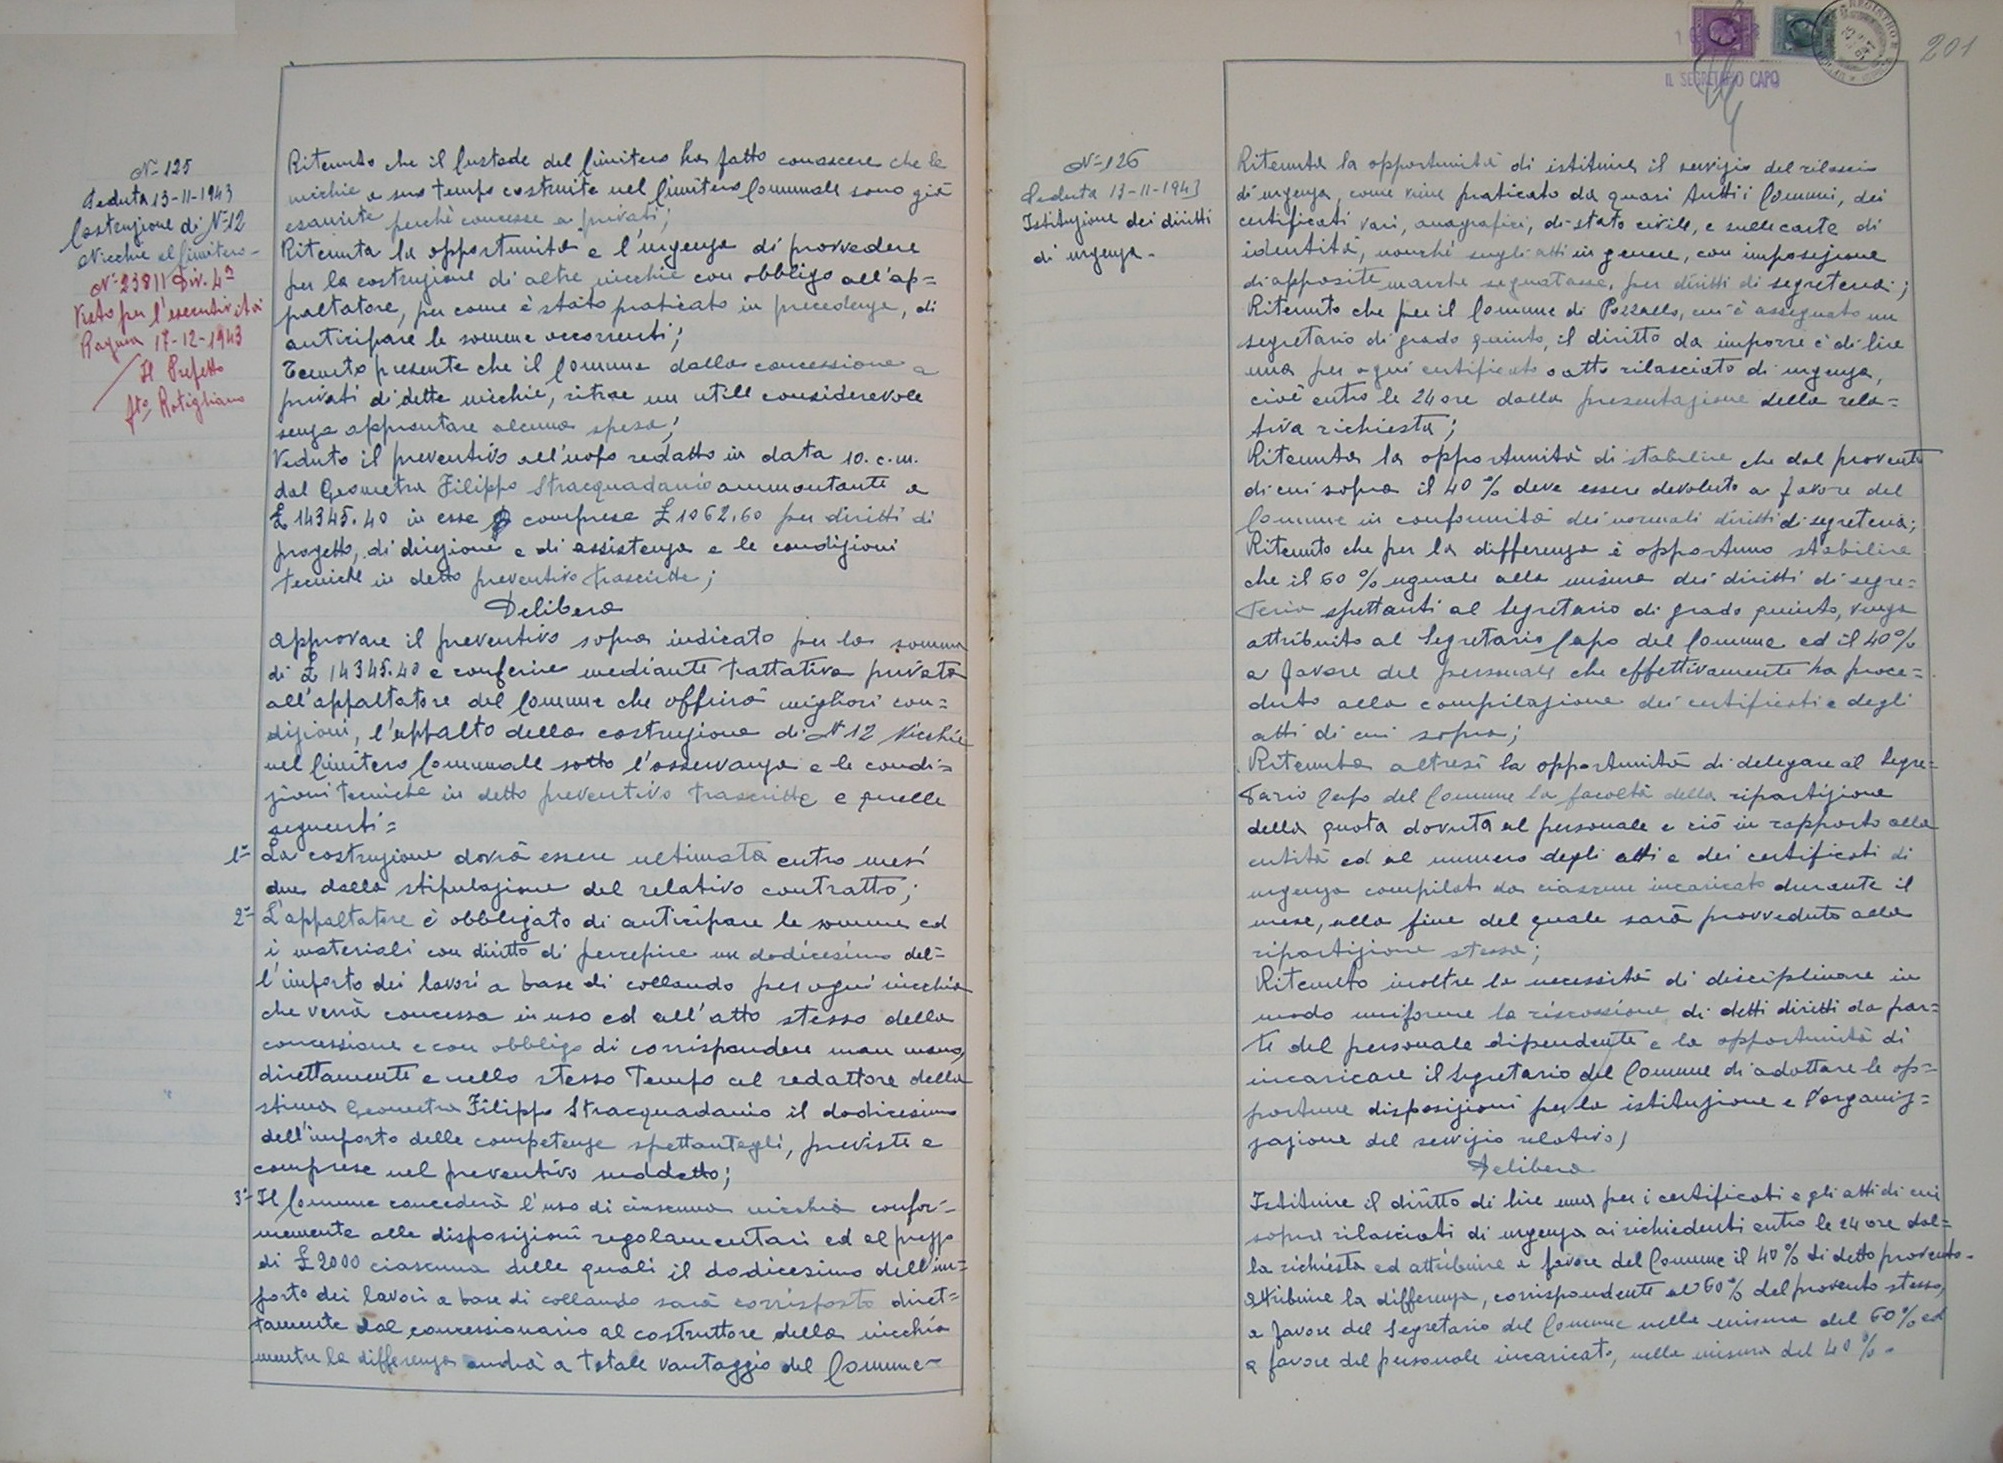 N. 125
Seduta 13-11-1943
Costruzione di N. 12
Nicchie al Cimitero-
N. 23811 Div. 4ª
Visto per l'esecutività
Ragusa 17-12-1943
Il Prefetto
fto Rotigliano
Ritenuto che il Custode del Cimitero ha fatto conoscere che le
nicchie a suo tempo costruite nel Cimitero Comunale sono già
esaurite perchè concesse a privati;
Ritenuta la opportunità e l'urgenza di provvedere
per la costruzione di altre nicchie con obbligo all'ap=
paltatore, per come è stato praticato in precedenza, di
anticipare le somme occorrenti;
Tenuto presente che il Comune dalla concessione a
privati di dette nicchie, ritrae un utile considerevole
senza approntare alcuna spesa;
Veduto il preventivo all'uopo redatto in data 10. c.m.
dal Geometra Filippo Stracquadanio ammontante a
£ 14345.40 in esse comprese £ 1062.60 per diritti di
progetto, di direzione e di assistenza e le condizioni
tecniche in detto preventivo trascritte;
Delibera
approvare il preventivo sopra indicato per la somma
di £ 14345.40 e conferire mediante trattativa privata
all'appaltatore del Comune che offrirà migliori con=
dizioni, l'appalto della costruzione di N. 12 Nicchie
nel Cimitero Comunale sotto l'osservanza e le condi=
zioni tecniche in detto preventivo trascritte e quelle
seguenti=
1- La costruzione dovrà essere ultimata entro mesi
due dalla stipulazione del relativo contratto;
2- L'appaltatore è obbligato di anticipare le somme ed
i materiali con diritto di percepire un dodicesimo del=
l'importo dei lavori a base di collaudo per ogni nicchia
che verrà concessa in uso ed all'atto stesso della
concessione e con obbligo di corrispondere man mano,
direttamente e nello stesso tempo al redattore della
stima Geometra Filippo Stracquadanio il dodicesimo
dell'importo delle competenze spettantegli, previste e
comprese nel preventivo suddetto;
3- Il Comune concederà l'uso di ciascuna nicchia confor=
memente alle disposizioni regolamentari ed al prezzo
di £ 2000 ciascuna delle quali il dodicesimo dell'im=
porto dei lavori a base di collaudo sarà corrisposto diret=
tamente dal concessionario al costruttore della nicchia
mentre la differenza andrà a totale vantaggio del Comune-
IL SEGRETARIO CAPO
201
N. 126
Seduta 13-11-1943
Istituzione dei diritti
di urgenza-
Ritenuta la opportunità di istituire il servizio del rilascio
di urgenza, come viene praticato da quasi tutti i Comuni, dei
certificati vari, anagrafici, di stato civile, e sulle carte di
identità, nonchè sugli atti in genere, con imposizione
di apposite marche segnatasse, per diritti di segreteria;
Ritenuto che per il Comune di Pozzallo, cui è assegnato un
segretario di grado quinto, il diritto da imporre è di lire
una per ogni certificato o atto rilasciato di urgenza,
cioè entro le 24 ore dalla presentazione della rela=
tiva richiesta;
Ritenuta la opportunità di stabilire che dal provento
di cui sopra il 40% deve essere devoluto a favore del
Comune in conformità dei normali diritti di segreteria;
Ritenuto che per la differenza è opportuno stabilire
che il 60% uguale alla misura dei diritti di segre=
teria spettanti al Segretario di grado quinto, venga
attribuito al Segretario Capo del Comune ed il 40%
a favore del personale che effettivamente ha proce=
duto alla compilazione dei certificati e degli
atti di cui sopra;
Ritenuta altresì la opportunità di delegare al Segre=
tario Capo del Comune la facoltà della ripartizione
della quota dovuta al personale e ciò in rapporto alla
entità ed al numero degli atti e dei certificati di
urgenza compilati da ciascun incaricato durante il
mese, alla fine del quale sarà provveduto alla
ripartizione stessa;
Ritenuto inoltre la necessità di disciplinare in
modo uniforme la riscossione di detti diritti da par=
te del personale dipendente e la opportunità di
incaricare il Segretario del Comune di adottare le op=
portune disposizioni per la istituzione e l'organiz=
zazione del servizio relativo;
Delibera
Istituire il diritto di lire una per i certificati e gli atti di cui
sopra rilasciati di urgenza ai richiedenti entro le 24 ore dal=
la richiesta ed attribuire a favore del Comune il 40% di detto provento-
attribuire la differenza, corrispondente al 60% del provento stesso,
a favore del Segretario del Comune nella misura del 60% ed
a favore del personale incaricato, nella misura del 40%-